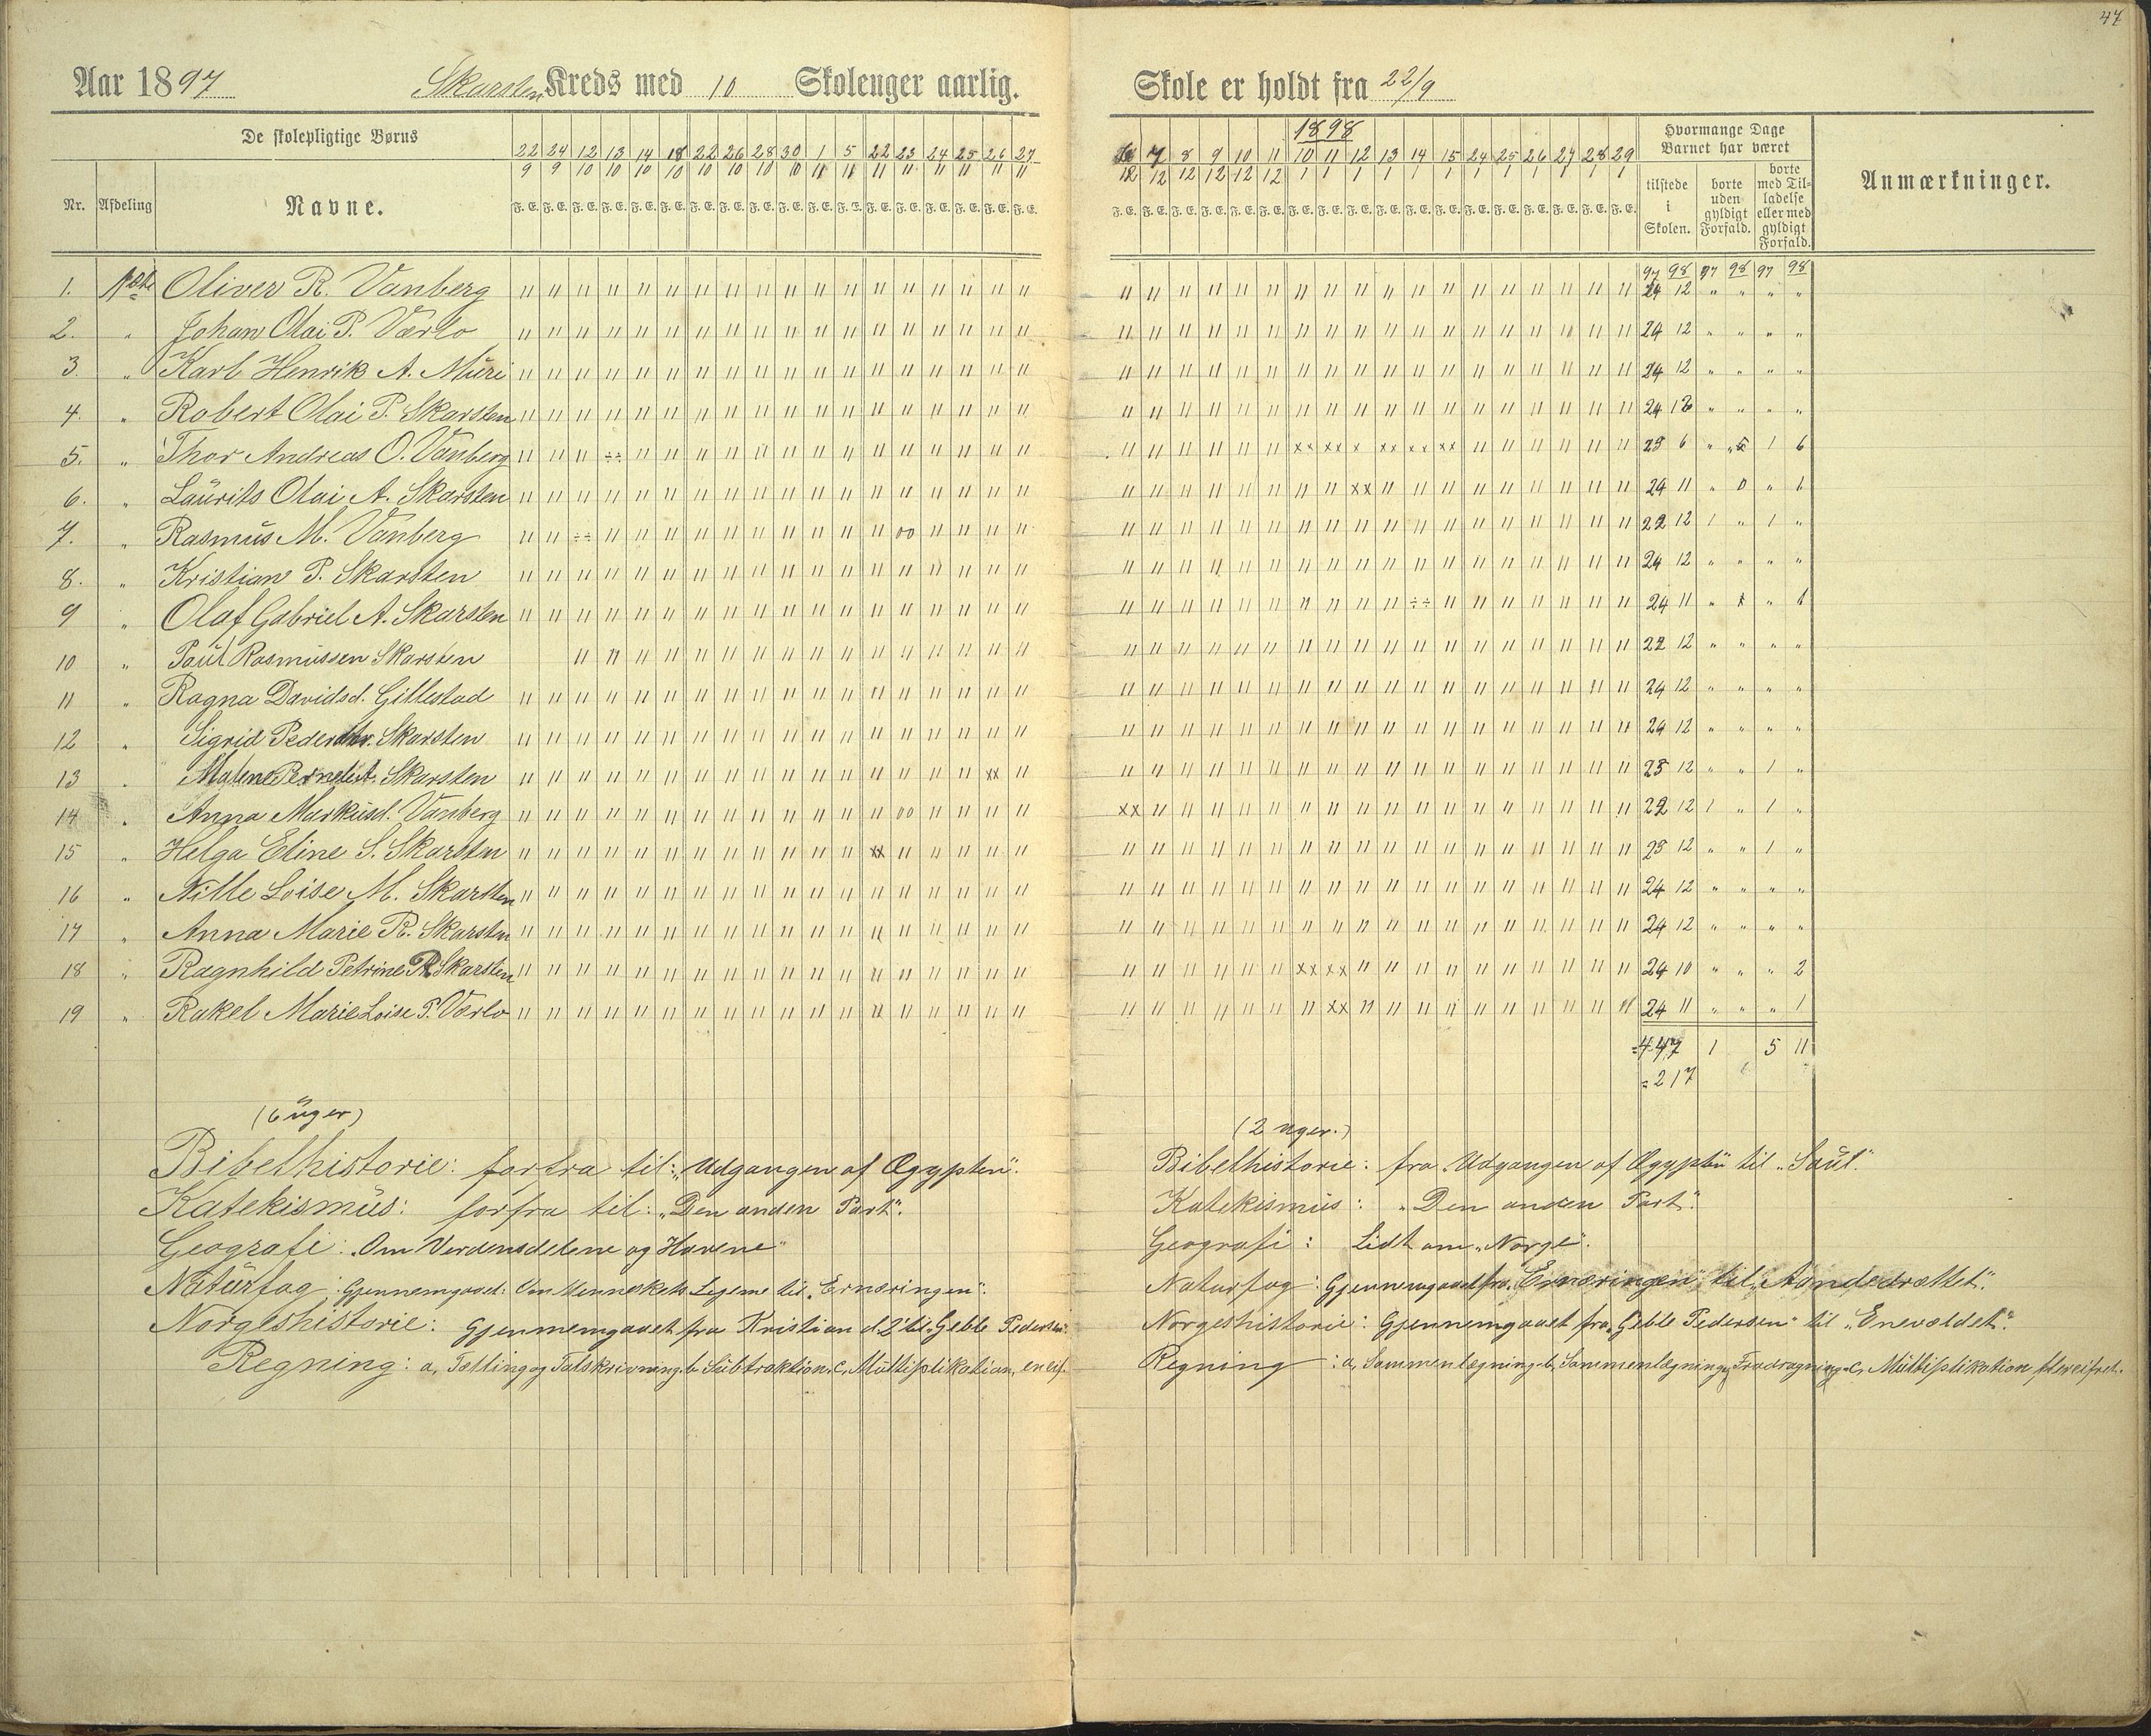 47
Aar 1897 Skarsten Kreds med 10 Skoleuger aarlig. Skole er holdt fra 22/9
De skolepligtige Børns
Nr. Afdeling Navne.
22 24 12 13 14 18 22 26 28 30 1 5 22 23 24 25 26 27
9 9 10 10 10 10 10 10 10 10 11 11 11 11 11 11 11 11
F. E. F. E. F. E. F. E. F. E. F. E. F. E. F. E. F. E. F. E. F. E. F. E. F. E. F. E. F. E. F. E. F. E. F. E.
1898
7 8 9 10 11 10 11 12 13 14 15 24 25 26 27 28 29
12 12 12 12 12 12 1 1 1 1 1 1 1 1 1 1 1 1
F. E. F. E. F. E. F. E. F. E. F. E. F. E. F. E. F. E. F. E. F. E. F. E. F. E. F. E. F. E. F. E. F. E. F. E.
Hvormange Dage Barnet har været
tilstede i Skolen. borte uden gyldigt Forfald. borte med Tilladelse eller med gyldigt Forfald.
Anmærkninger.
97 98 97 98 97 98
1. Oliver R. Vanberg 24 12 " " " "
2. " Johan Olai P. Værlo 24 12 " " " "
3. " Karl Henrik A. Muri 24 12 " " " "
4. " Robert Olai P. Skarsten 24 12 " " " "
5. " Thor Andreas O. Vanberg 23 6 " " 1 6
6. " Laurits Olai A. Skarsten 24 11 " 0 " 1
7. " Rasmus M. Vanberg 22 12 1 " 1 "
8. " Kristian P. Skarsten 24 12 " " " "
9 " Olaf Gabriel A. Skarsten 24 11 " " 1
10 " Paul Rasmussen Skarsten 22 12 " " " "
11 " Ragna Davidsd. Gillestad 24 12 " " " "
12 " Sigrid Skarsten 24 12 " " " "
13 " Malene Pernele A. Skarsten 23 12 " " 1 "
14 " Anna Markusd. Vanberg 22 12 1 " 1 "
15 " Helga Eline S. Skarsten 23 12 " " 1 "
16 " Nille Loise M. Skarsten 24 12 " " " "
17 " Anna Marie R. Skarsten 24 12 " " " "
18 " Ragnhild Petrine R. Skarsten 24 10 " " " 2
19 " Rakel Marie Loise P. Værlo 24 11 " " " 1
=447 1 5 11
=217
(6 uger)
Bibelhistorie: forfra til: „Udgangen af Ægypten".
Katekismus: forfra til: „Den anden Part".
Geografi: „Om Verdensdelene og Havene"
Naturfag: Gjennemgaaet: Om Menneskets Legeme til „Ernæringen".
Norgeshistorie: Gjennemgaaet fra Kristian d. 2' til „Geble Pedersen".
Regning: a, Tælling og Talskrivning. b Subtraktion. c, Multiplikation, encif.
(2 uger.)
Bibelhistorie: fra Udgangen af Ægypten til „Saul".
Katekismus: „Den anden Part".
Geografi: Lidt om „Norge".
Naturfag: Gjennemgaaet fra „Ernæringen" til „Aandedrættet".
Norgeshistorie: Gjennemgaaet fra „Geble Pedersen" til „Enevældet".
Regning: a, Sammenlægning. b, Sammenlægning og Fradragning. c, Multiplikation, flercifret.